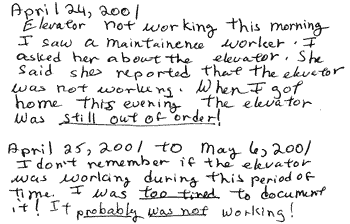 April 24, 2001
Elevator not working this morning
I saw a maintainence worker. I
asked her about the elevator. She
said she reported that the elevator
was not working. When I got
home this evening the elevator
was still out of order!
April 25, 2001 to May 6, 2001
I don't remember if the elevator
was working during this period of
time. I was too tired to document
it! It probably was not working!